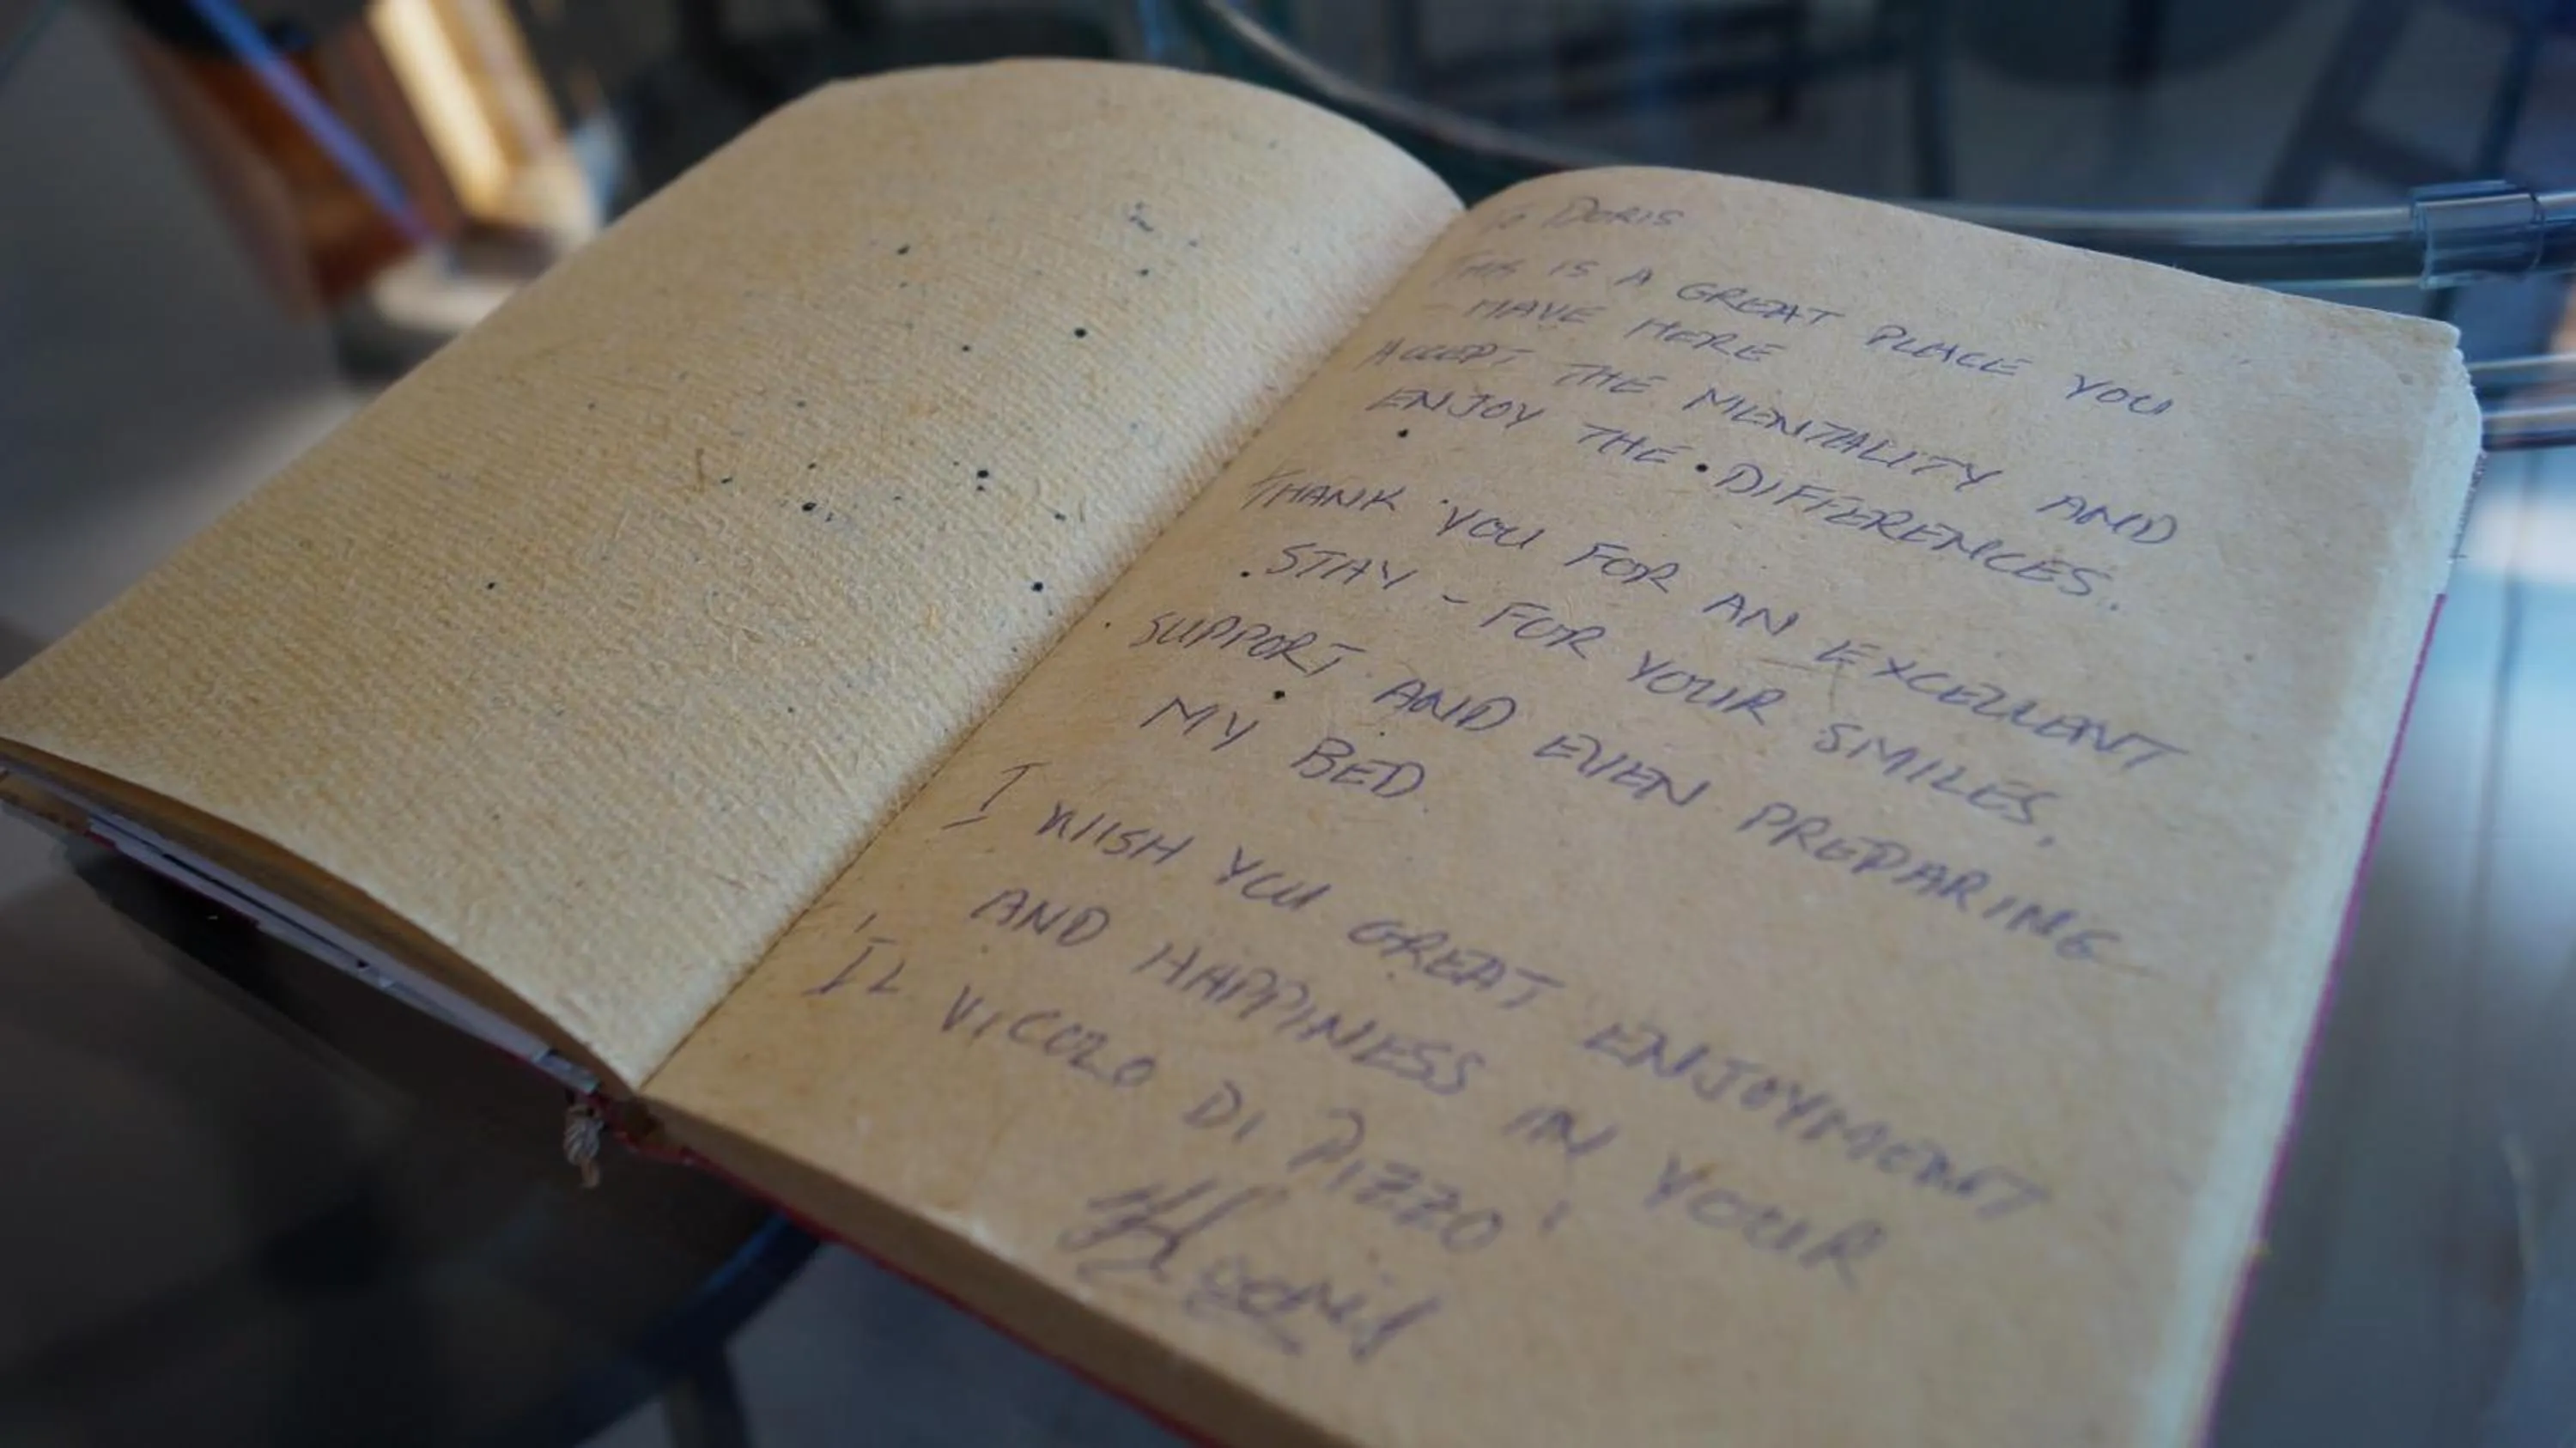 DORIS
THIS IS A GREAT PLACE YOU
- HAVE HERE
ACCEPT THE MENTALITY AND
ENJOY THE DIFFERENCES.
THANK YOU FOR AN EXCELLENT
STAY - FOR YOUR SMILES,
SUPPORT AND EVEN PREPARING
MY BED.
I WISH YOU GREAT ENJOYMENT
AND HAPPINESS IN YOUR
'IL VICOLO DI PIZZO'